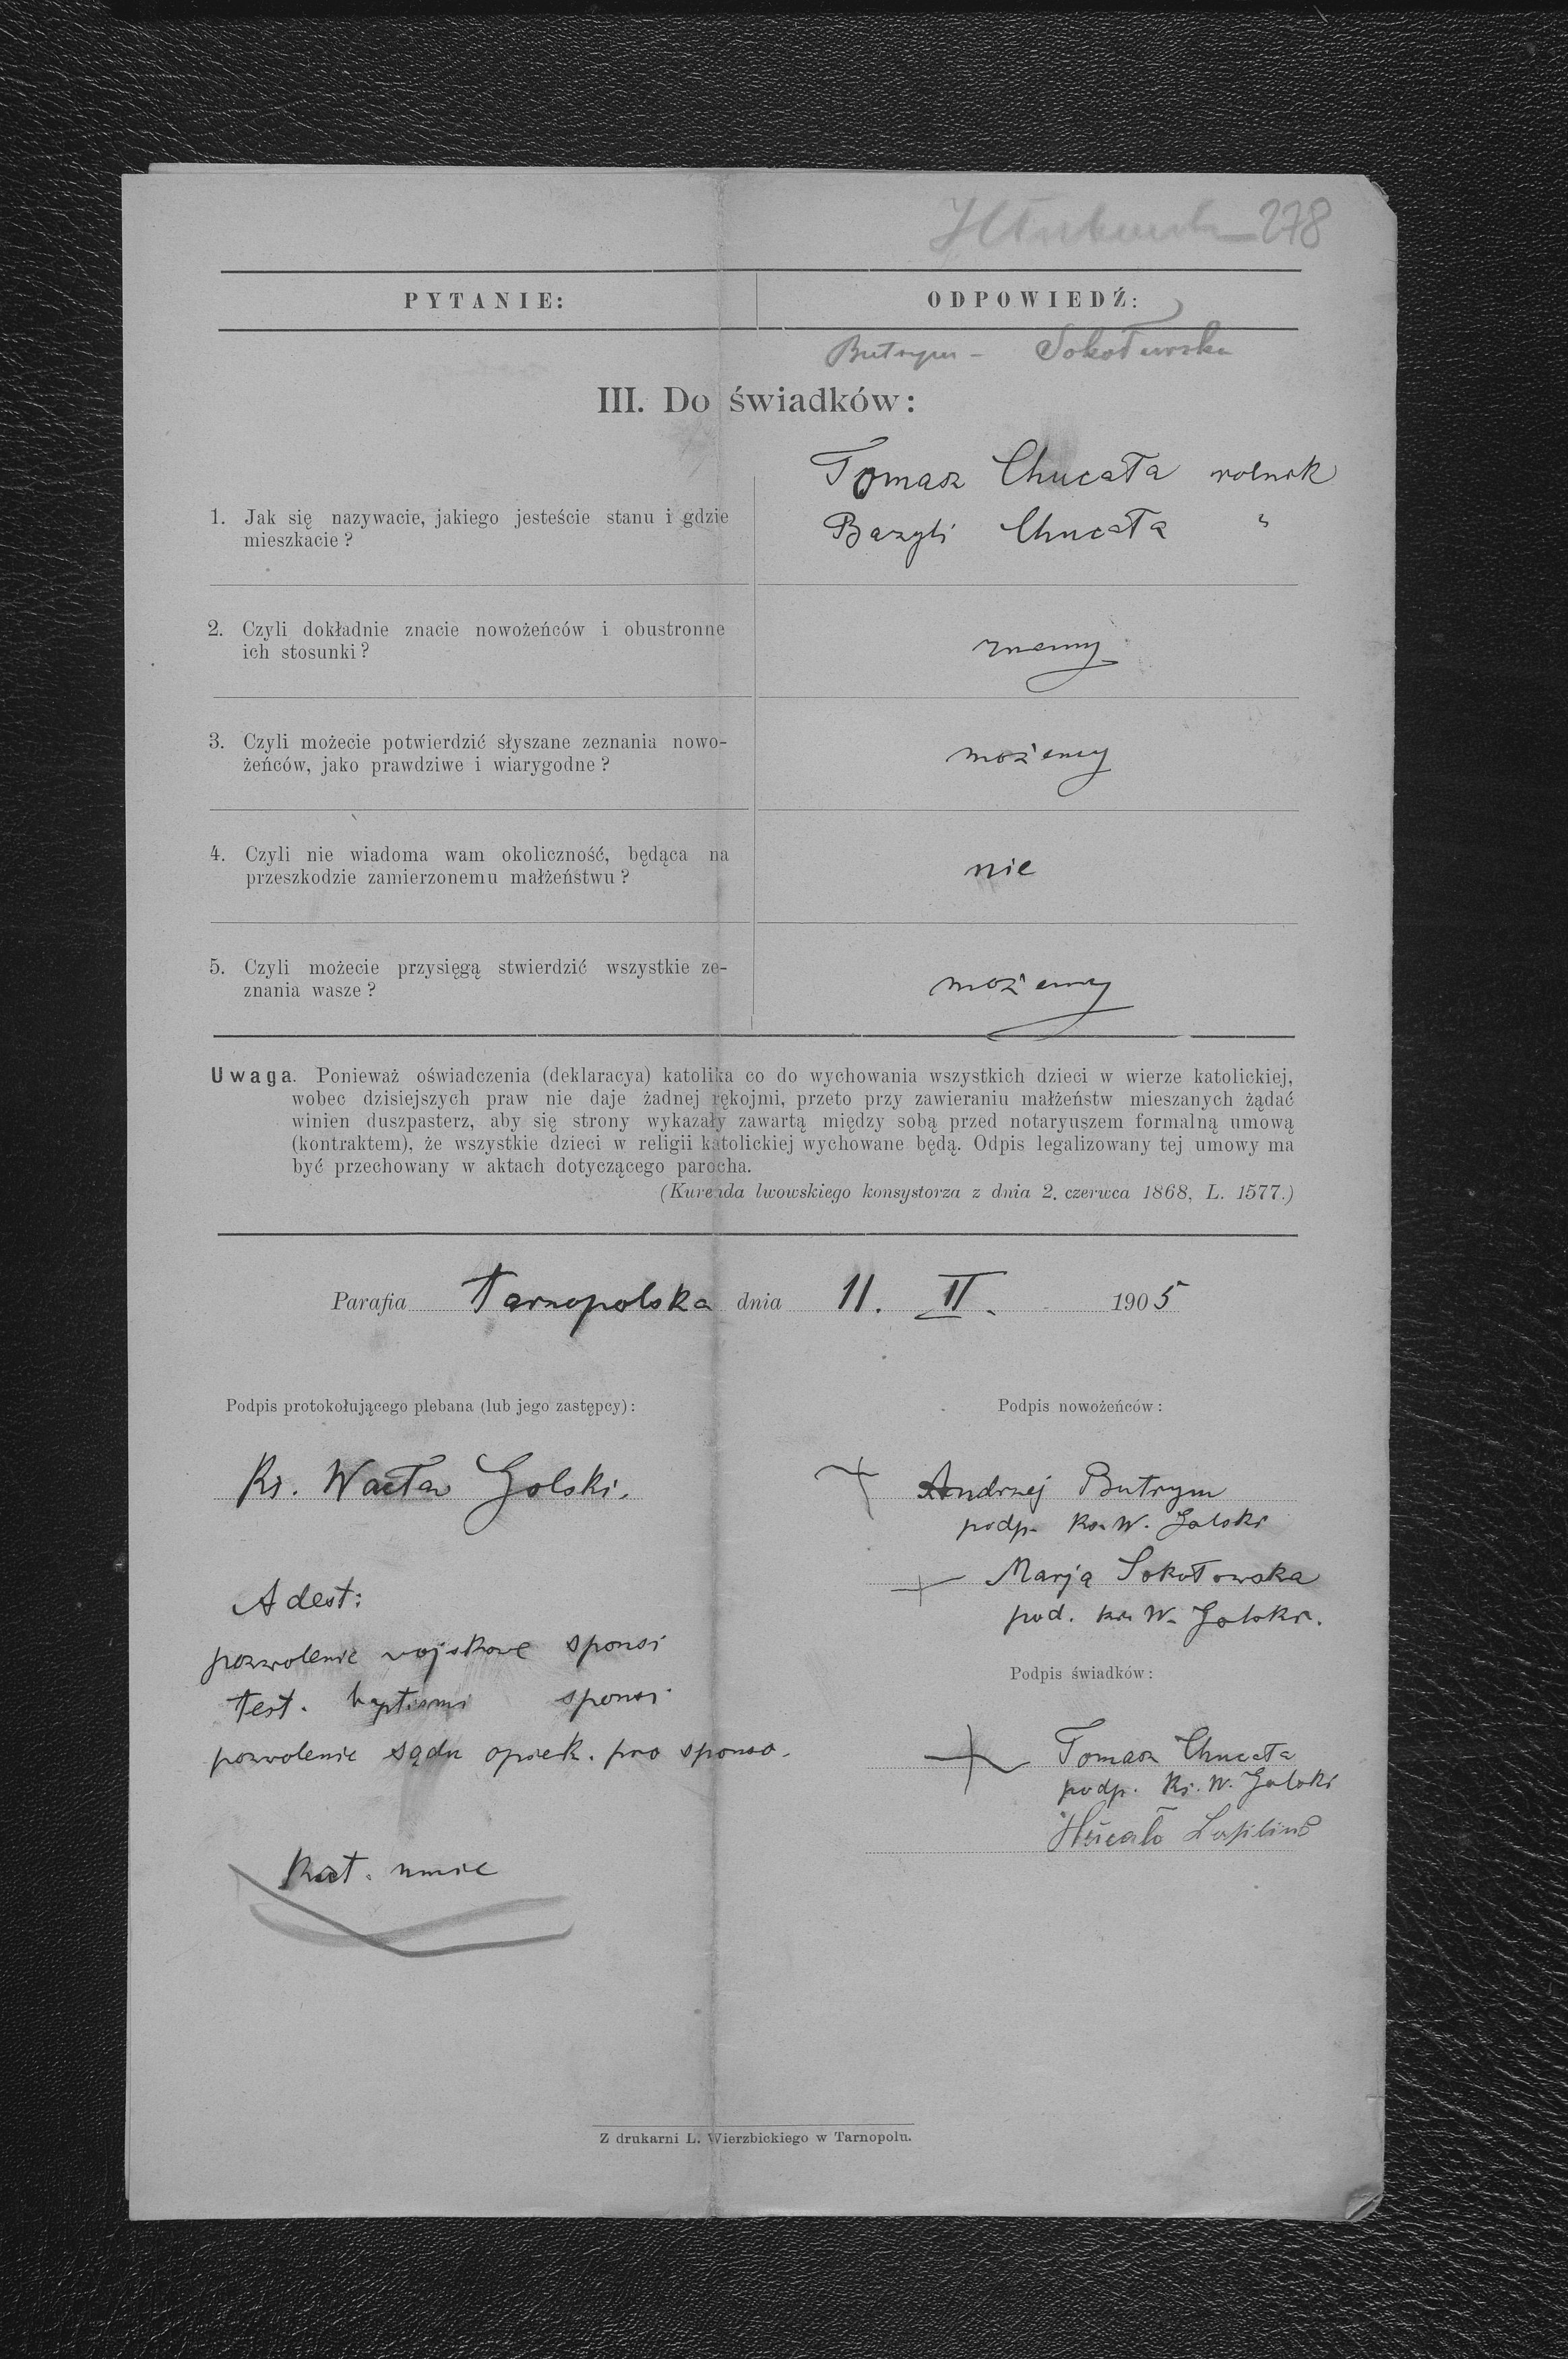 278
PYTANIE: ODPOWIEDŹ:
Butrym - Sokołowska
III. Do świadków:
Tomasz Chucała rolnik
1. Jak się nazywacie, jakiego jesteście stanu i gdzie
mieszkacie?
Bazyli Chucała "
2. Czyli dokładnie znacie nowożeńców i obustronne
ich stosunki?
znamy
3. Czyli możecie potwierdzić słyszane zeznania nowo-
żeńców, jako prawdziwe i wiarygodne?
możemy
4. Czyli nie wiadoma wam okoliczność, będąca na
przeszkodzie zamierzonemu małżeństwu?
nie
5. Czyli możecie przysięgą stwierdzić wszystkie ze-
znania wasze?
możemy
Uwaga. Ponieważ oświadczenia (deklaracya) katolika co do wychowania wszystkich dzieci w wierze katolickiej,
wobec dzisiejszych praw nie daje żadnej rękojmi, przeto przy zawieraniu małżeństw mieszanych żądać
winien duszpasterz, aby się strony wykazały zawartą między sobą przed notaryuszem formalną umową
(kontraktem), że wszystkie dzieci w religii katolickiej wychowane będą. Odpis legalizowany tej umowy ma
być przechowany w aktach dotyczącego parocha.
(Kurenda lwowskiego konsystorza z dnia 2. czerwca 1868, L. 1577.)
Parafia Tarnopolska dnia 11. II. 1905
Podpis protokołującego plebana (lub jego zastępcy):
Ks. Wacław Golski.
Adest:
pozwolenie wojskowe sponsi
test. baptismi sponsi
pozwolenie sądu opiek. pro sponso.
Kat. umie
Podpis nowożeńców:
Andrzej Butrym
podp. ks. W. Golski
Marja Sokołowska
pod. ks. W. Golski.
Podpis świadków:
Tomasz Chucała
podp. Ks. W. Golski
Z drukarni L. Wierzbickiego w Tarnopolu.